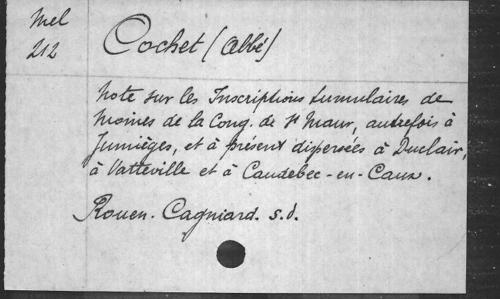 Mel
212
Cochet (Abbé)
Note sur les Inscriptions tumulaires de
Moines de la Cong. de St Maur, autrefois à
Jumièges, et à présent dispersées à Duclair,
à Vatteville et à Caudebec-en-Caux.
Rouen. Cagniard. s.d.